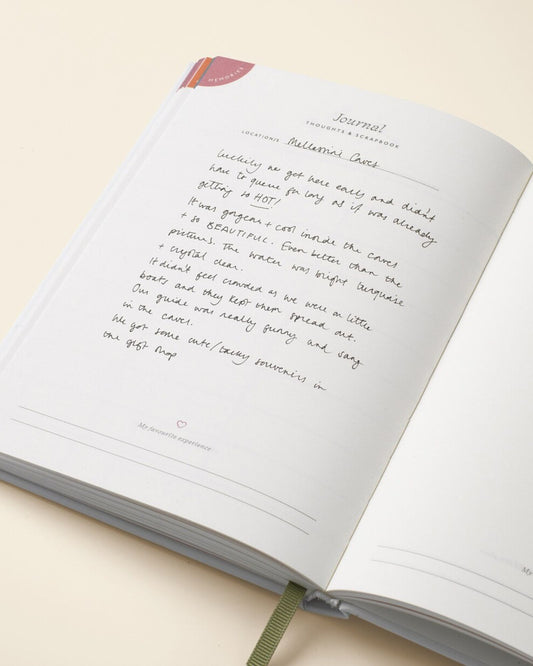 MEMORIES
Journal
THOUGHTS & SCRAPBOOK
LOCATION/S Mellissani Caves
Luckily we got here early and didn't
have to queue for long as it was already
getting so HOT!
It was gorgeous + cool inside the caves
+ so BEAUTIFUL. Even better than the
pictures. The water was bright turquoise
+ crystal clear.
It didn't feel crowded as we were on little
boats and they kept them spread out.
Our guide was really funny and sang
in the caves.
We got some cute/tacky souvenirs in
the gift shop
My favourite experience
My